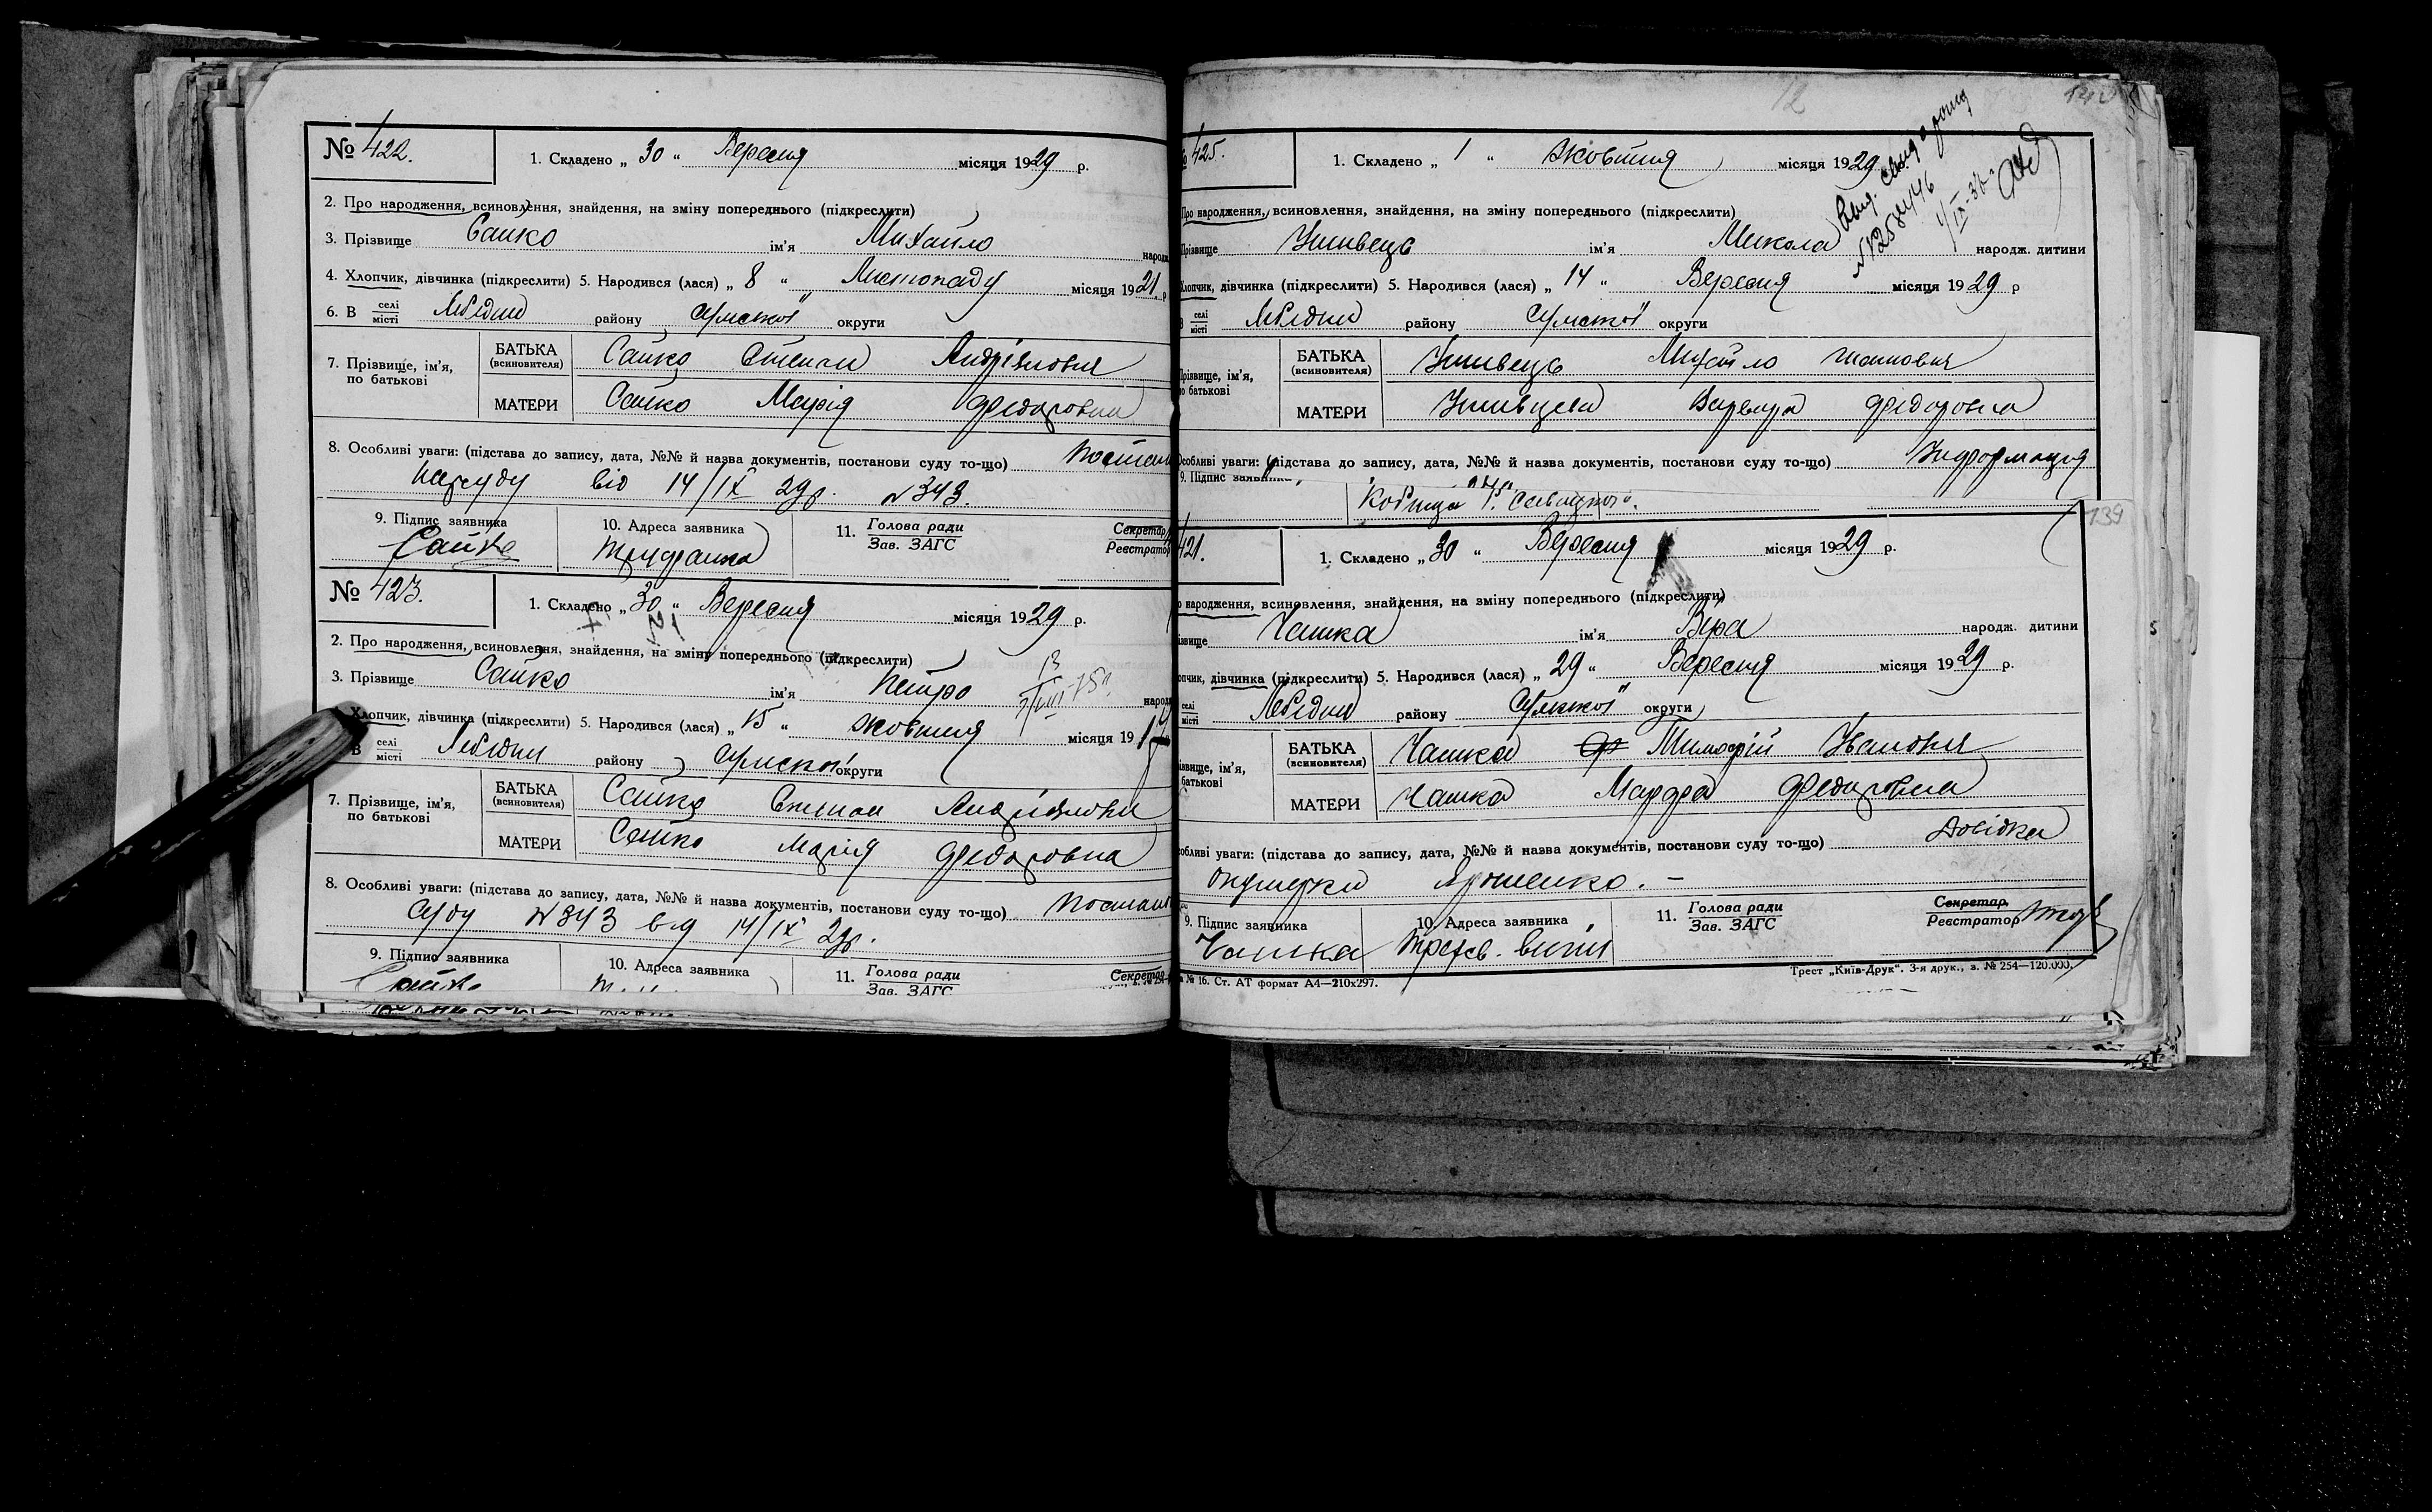 № 422.
1. Складено „ 30 “ Вересня місяця 1929 р.
2. Про народження, всиновлення, знайдення, на зміну попереднього (підкреслити)
3. Прізвище Сайко ім'я Михайло народж
4. Хлопчик, дівчинка (підкреслити) 5. Народився (лася) „ 8 “ Листопаду місяця 1921 р
6. В селі місті Лебедин району Сумської округи
7. Прізвище, ім'я, по батькові
БАТЬКА (всиновителя) Сайко Степан Андріянович
МАТЕРИ Сайко Марія Федоровна
8. Особливі уваги: (підстава до запису, дата, №№ й назва документів, постанови суду то-що) Постан
Нарсуду від 14/IX 29р. №343.
9. Підпис заявника 10. Адреса заявника 11. Голова ради Зав. ЗАГС Секретар Реєстратор
Сайко
№ 423.
1. Складено „ 30 “ Вересня місяця 1929 р.
2. Про народження, всиновлення, знайдення, на зміну попереднього (підкреслити)
3. Прізвище Сайко ім'я Петро народж
Хлопчик, дівчинка (підкреслити) 5. Народився (лася) „ 15 “ жовтня місяця 19
В селі місті Лебедин району Сумської округи
7. Прізвище, ім'я, по батькові
БАТЬКА (всиновителя) Сайко Степан Андріянович
МАТЕРИ Сайко Марія Федоровна
8. Особливі уваги: (підстава до запису, дата, №№ й назва документів, постанови суду то-що) Постан
Суду №343 від 14/IX 29р.
9. Підпис заявника 10. Адреса заявника 11. Голова ради Зав. ЗАГС Секретар
Сайко
12
425.
1. Складено „ 1 “ Жовтня місяця 1929
Про народження, всиновлення, знайдення, на зміну попереднього (підкреслити)
Прізвище Ушивець ім'я Микола народж. дитини
Хлопчик, дівчинка (підкреслити) 5. Народився (лася) „ 14 “ Вересня місяця 1929 р
селі місті Лебедин району Сумської округи
Прізвище, ім'я, по батькові
БАТЬКА (всиновителя) Ушивець Михайло
МАТЕРИ Ушивцева Варвара Федоровна
Особливі уваги: (підстава до запису, дата, №№ й назва документів, постанови суду то-що) Информация
9. Підпис заявника
139
421.
1. Складено „ 30 “ Вересня місяця 1929 р.
народження, всиновлення, знайдення, на зміну попереднього (підкреслити)
Чашка ім'я Віра народж. дитини
дівчинка (підкреслити) 5. Народився (лася) „ 29 “ Вересня місяця 1929 р.
селі місті Лебедин району Сумської округи
БАТЬКА (всиновителя) Чашка Тимофій Іванович
МАТЕРИ Чашка Марфа Федоровна
уваги: (підстава до запису, дата, №№ й назва документів, постанови суду то-що) Довідка
акушерки Ярошенко. –
9. Підпис заявника 10. Адреса заявника 11. Голова ради Зав. ЗАГС Секретар Реєстратор
Чашка
№ 16. Ст. АТ формат А4—210х297.
Трест „Київ-Друк“. 3-я друк., з. № 254—120.000.